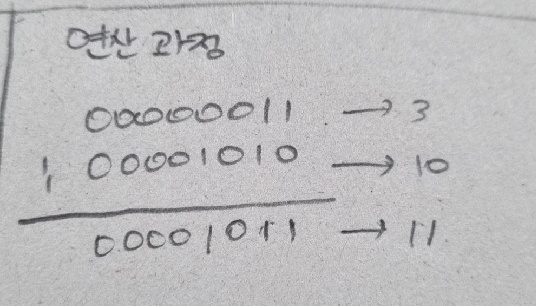 연산 과정
00000011 → 3
| 00001010 → 10
00001011 → 11